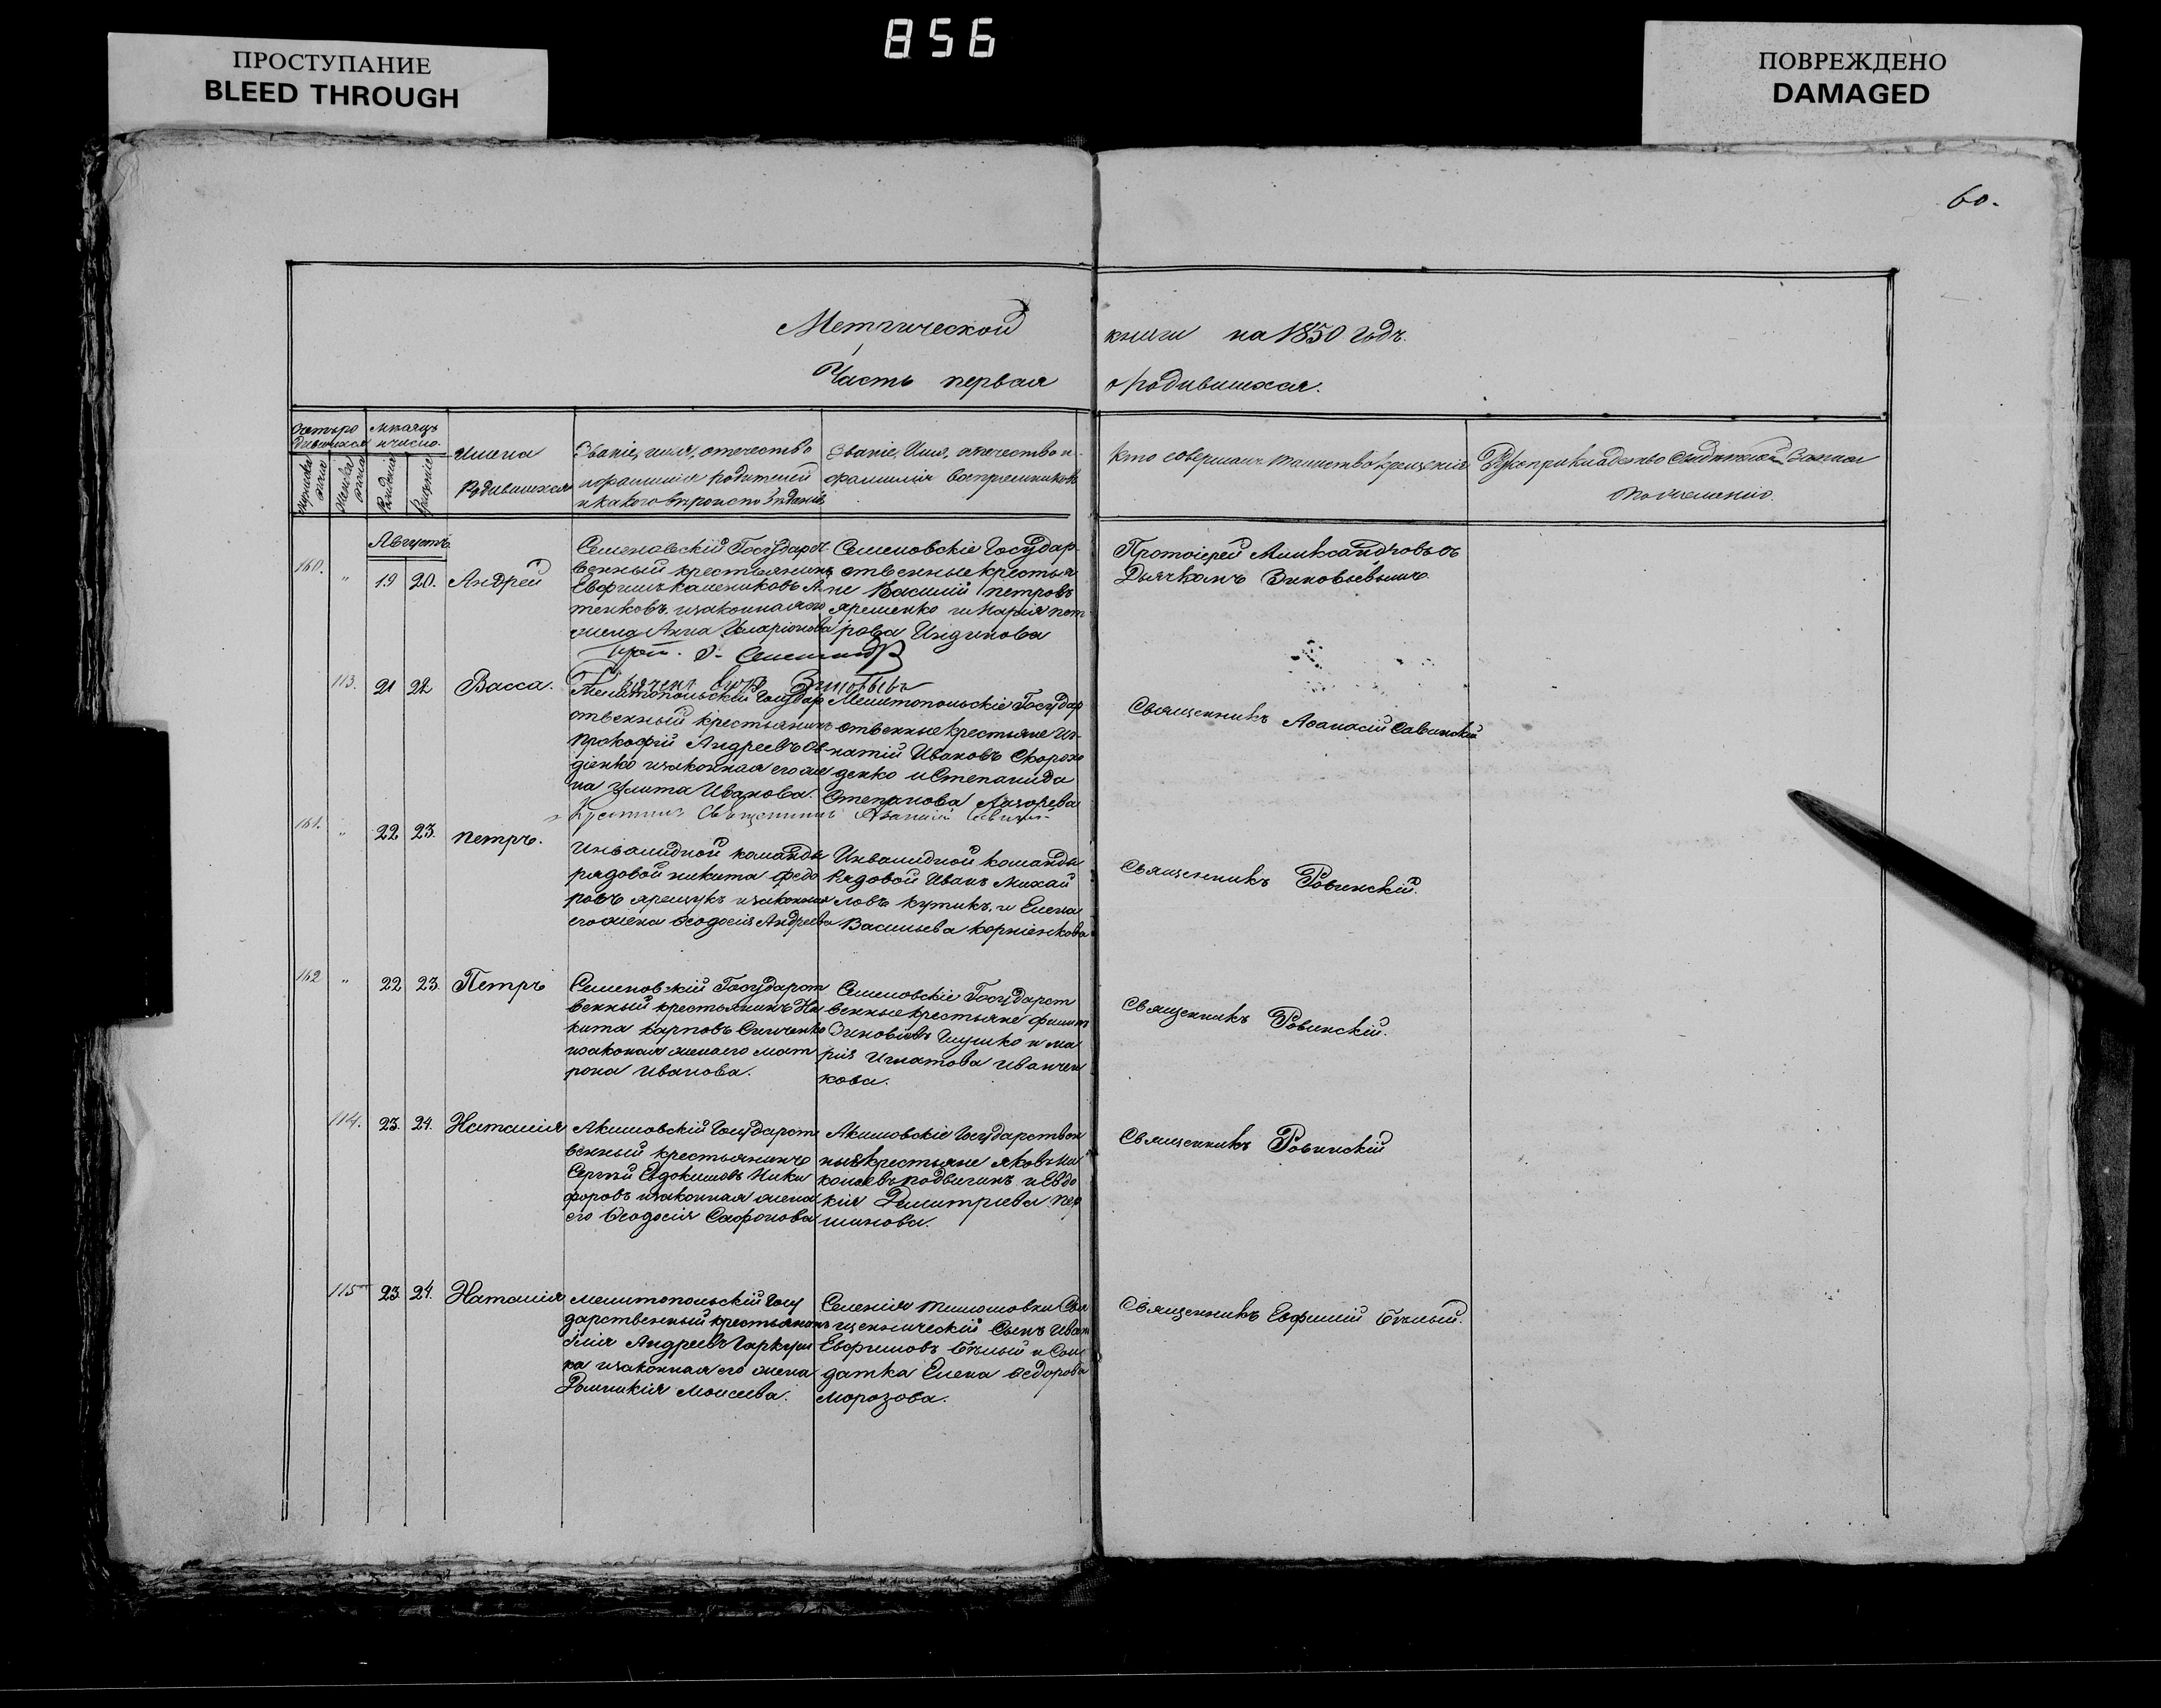 856
ПРОСТУПАНИЕ
BLEED THROUGH
ПОВРЕЖДЕНО
DAMAGED
60.
Метрической книги на 1850 годъ.
Часть первая о родившихся.
Мѣсяцъ
и число.
Имена
Родившихся
Званіе, имя, отечество
и фамилія родителей
и какого вѣроисповѣданія
Званіе, Имя, отечество и
фамилія воспріемниковъ
Кто совершалъ таинство крещенія
Рукоприкладство свидѣтелей записи
по желанію.
Августъ
160. " 19 20. Андрей
Семеновскій Государст
венный крестьянинъ
женковъ. и законная его
жена Анна Иларіонова
Семеновскіе Государ
ственные крестья
не Василій Петровъ
яременко и Марія пет
рова
Протоіерей Александровъ съ
Дьячкомъ Зиновьевымъ.
113. 21 22 Васса.
Мелитопольскій Государ
ственный крестьянинъ
Прокофій Андреевъ Ов
діенко и законная его же
на Улита Иванова.
Мелитопольскіе Государ
ственные крестьяне Иг
натій Ивановъ Скорохо
денко и Степанида
Степанова Лазорева
Священникъ Аѳанасій Савинскій
161. " 22 23. Петръ.
Инвалидной команды
рядовой Никита Федо
ровъ яремчукъ и законная
его жена Ѳеодосія Андреева
Инвалидной команды
Рядовой Иванъ Михай
ловъ Кутикъ, и Елена
Васильева Корніенкова
Священникъ Ровинскій.
162 " 22 23. Петръ
Семеновскій Государст
венный крестьянинъ Ни
кита Карповъ Симченко
и законная жена его Мат
рона Иванова.
Семеновскіе Государст
венные крестьяне Филипъ
Зиновіевъ Шушко и Ма
рія Игнатова Иванчен
кова.
Священникъ Ровинскій.
114. 23. 24. Наталія
Акимовскій Государст
венный крестьянинъ
Сергѣй Евдокимовъ Ники
форовъ и законная жена
его Ѳеодосія Сафонова
Акимовскіе Государствен
ные крестьяне Яковъ Ни
коновъ подвигинъ и Евдо
кія Димитріева Пер
шинова.
Священникъ Ровинскій
115 23. 24. Наталія
Мелитопольскій Госу
дарственный крестьянинъ
Илія Андреевъ Гаркуш
ка и законная его жена
Домникія Моисеева.
Селенія Тимошовки Свя
щенническій Сынъ Иванъ
Евфимовъ Бѣлый и Сол
датка Елена Ѳедорова
Морозова.
Священникъ Евфимій Бѣлый.